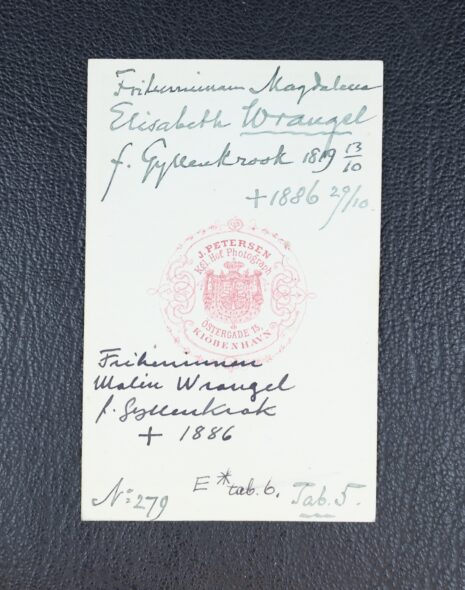 Friherrinnan Magdalena
Elisabeth Wrangel
f. Gyllenkrook 1819 13/10
+ 1886 29/10
J. PETERSEN
Kgl. Hof Photograph
ÖSTERGADE 15,
KIÖBENHAVN
Friherrinnan
Malin Wrangel
f. Gyllenkrok
+ 1886
E* tab. 6.
Tab. 5.
No: 279